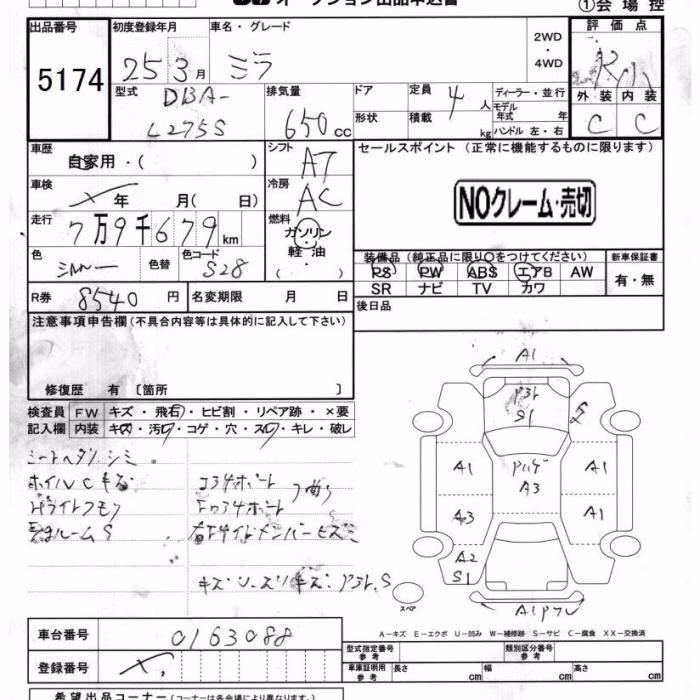 オークション出品申込書 ①会場控
出品番号 初度登録年月 車名・グレード 2WD・4WD 評価点
5174 25 3月 ミラ
型式 DBA-L275S 排気量 650cc ドア 形状 定員 4人 積載 kg ディーラー・並行 モデル年式 年 ハンドル 左・右
外装 内装
C C
車歴 自家用・( ) シフト AT セールスポイント(正常に機能するものに限ります)
車検 年 月( 日) 冷房 AC NOクレーム・売切
走行 7万9千679km 燃料 ガソリン・軽油 ( )
色 シルバー 色替 色コード S28 装備品(純正品に限り○をつけてください) 新車保証書
PS PW ABS エアB AW 有・無
SR ナビ TV カワ
R券 8540円 名変期限 月 日 後日品
注意事項申告欄(不具合内容等は具体的に記入して下さい)
修復歴 有〔箇所 〕
検査員記入欄 FW キズ・飛石・ヒビ割・リペア跡・×要
内装 キズ・汚レ・コゲ・穴・スレ・キレ・破レ
シミ
ホイルCキズ
S
キズ・U・スリキズ・
A1
S1
A1 A3 A1
A3 A1
A2
S1
A1
スペア
A-キズ E-エクボ U-凹み W-補修跡 S-サビ C-腐食 XX-交換済
車台番号 0163088
登録番号
型式指定番号 参考 類別区分番号 参考
車庫証明用 参考 長さ cm 幅 cm 高さ cm
希望出品コーナー(コーナーは各会場により異なります)